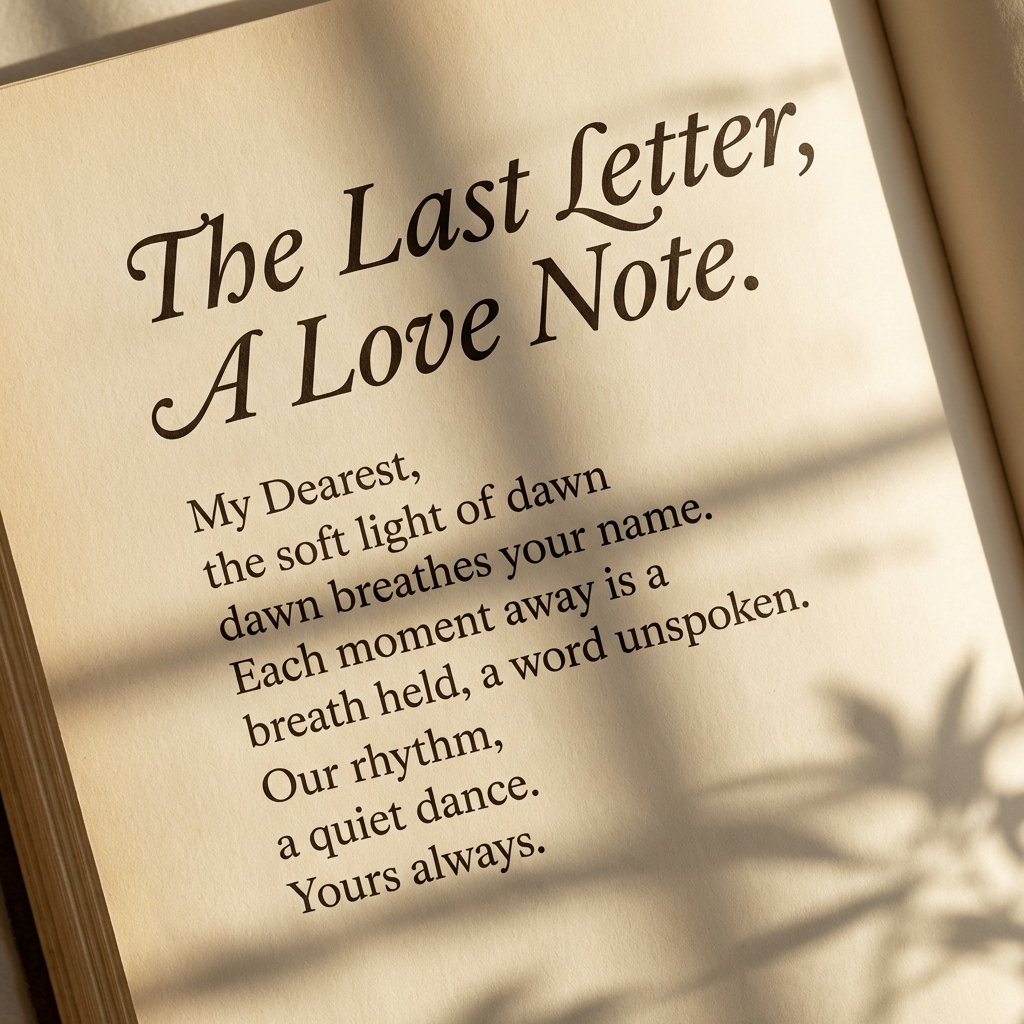 The Last Letter,
A Love Note.
My Dearest,
the soft light of dawn
dawn breathes your name.
Each moment away is a
breath held, a word unspoken.
Our rhythm,
a quiet dance.
Yours always.